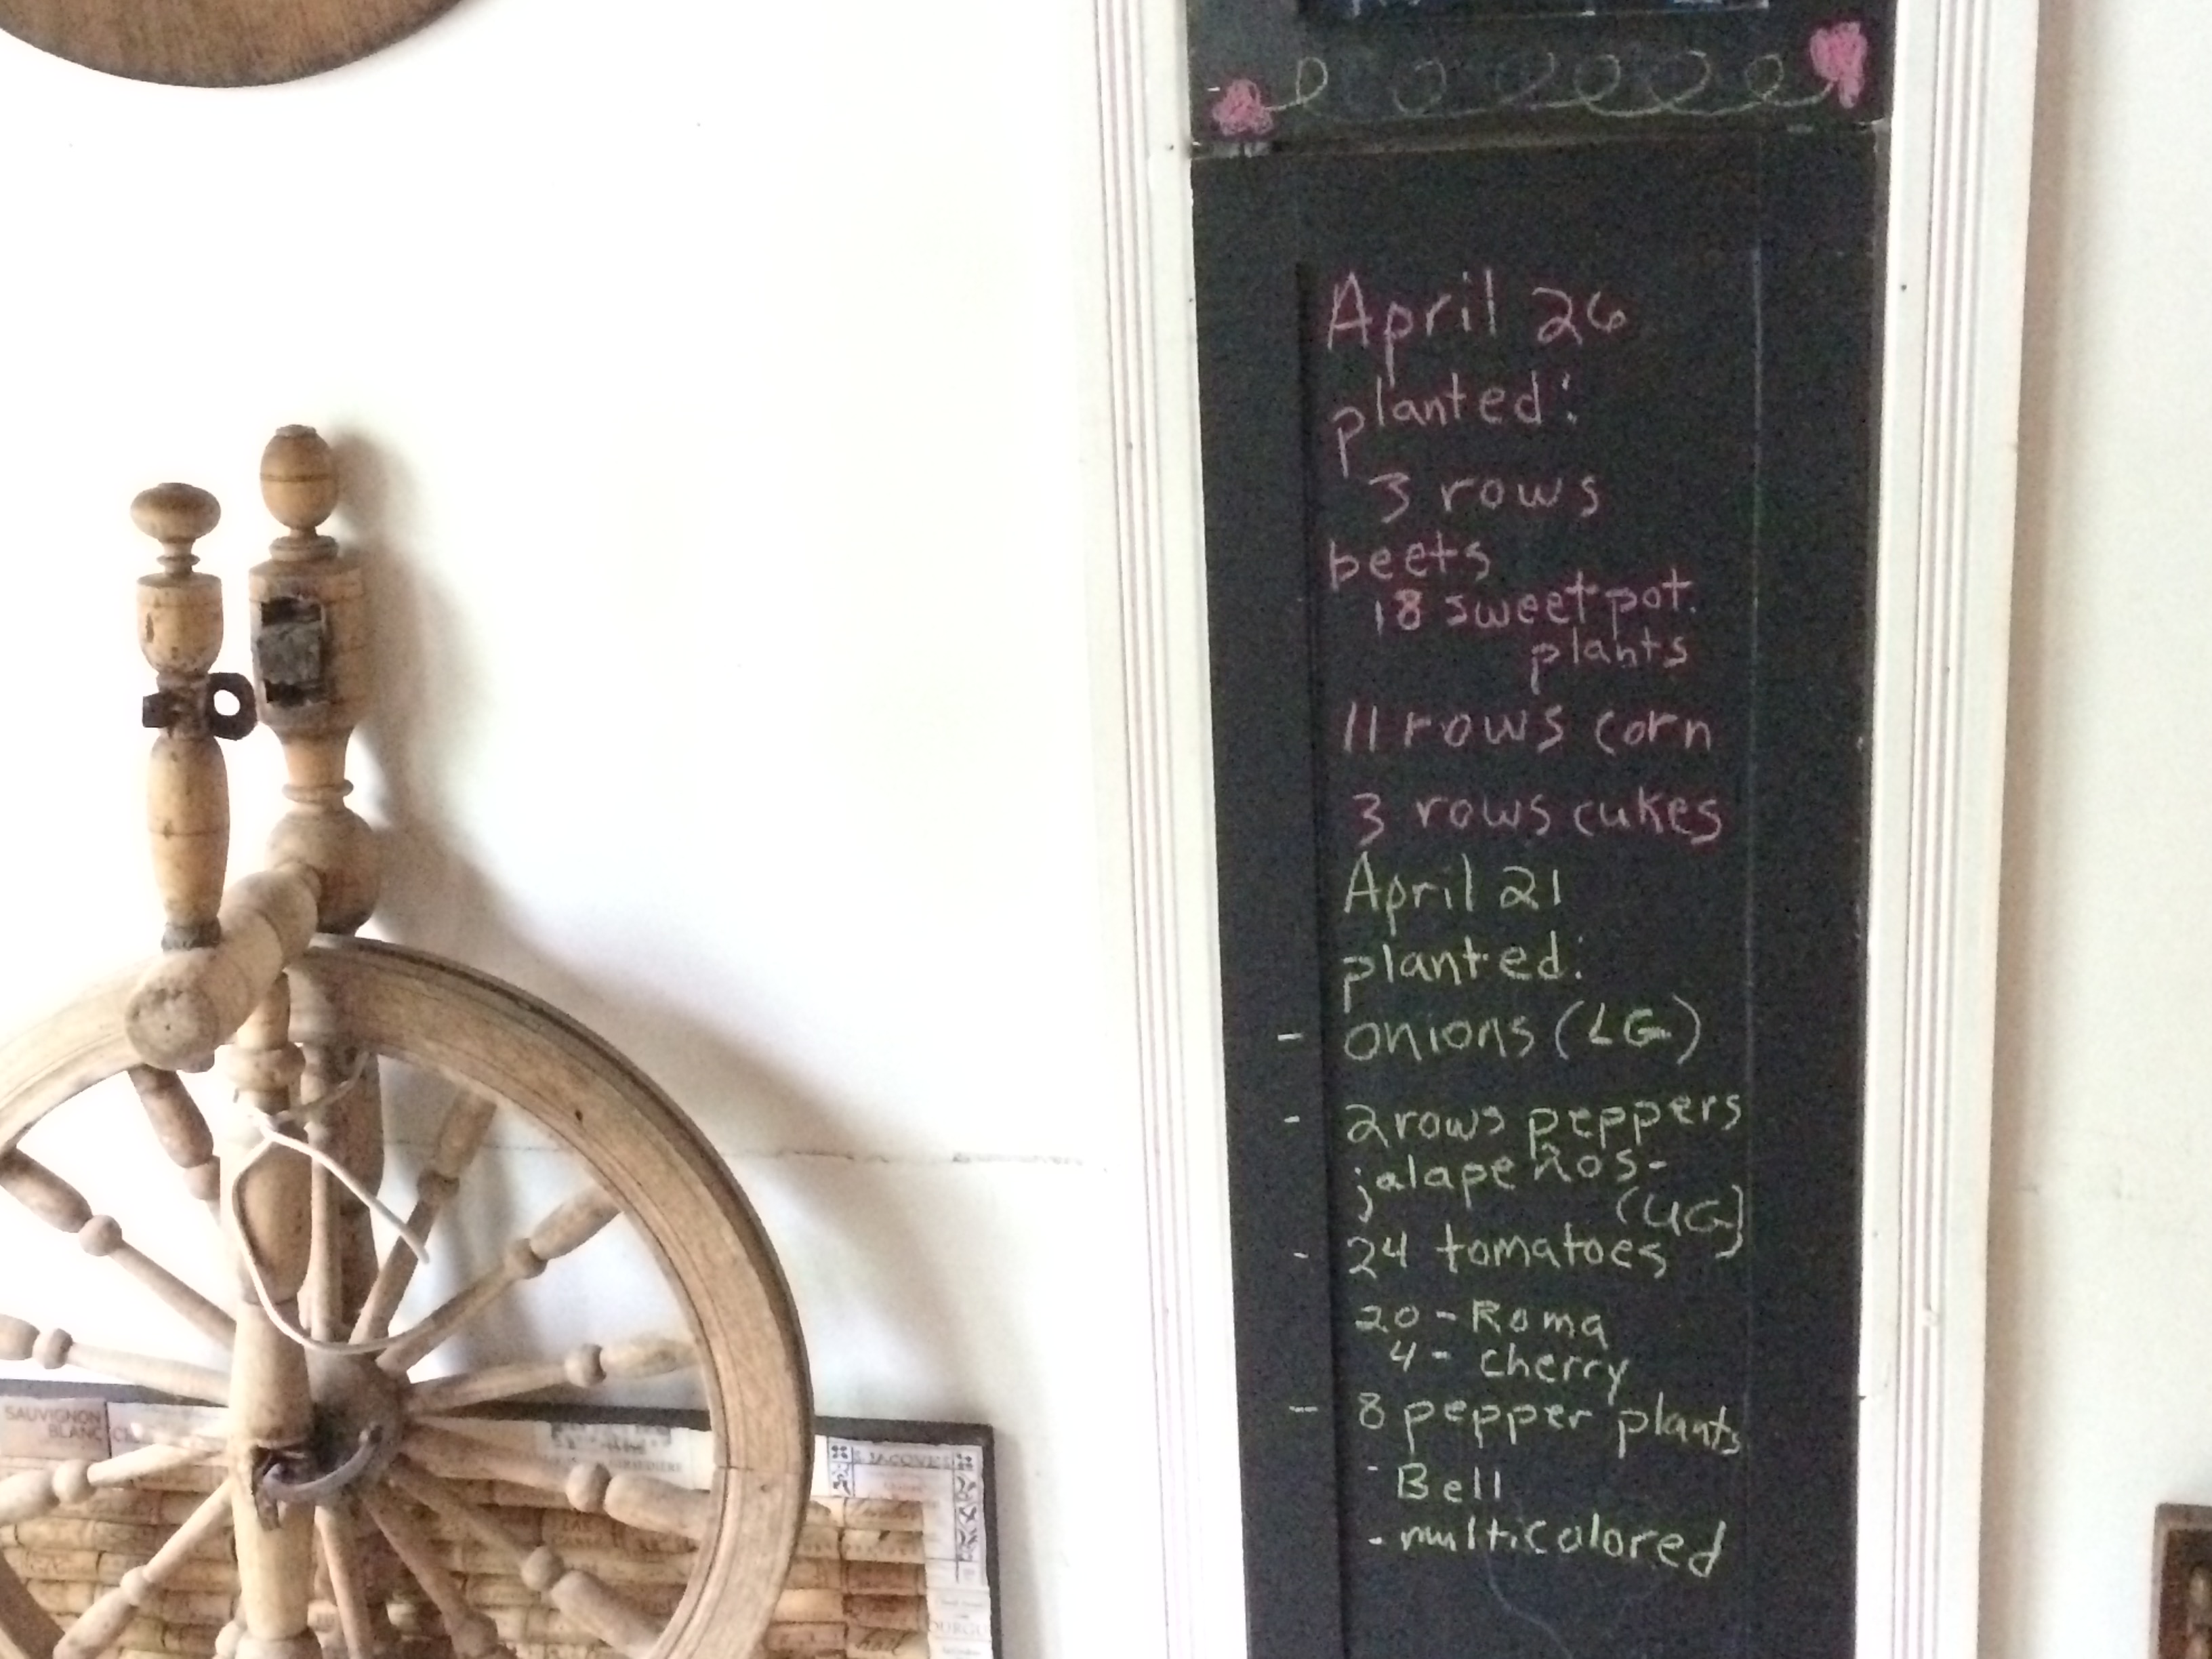 April 26
planted:
3 rows
beets
18 sweet pot.
plants
11 rows corn
3 rows cukes
April 21
planted:
- onions (LG)
- 2 rows peppers
jalapeños -
(UG)
- 24 tomatoes
20 - Roma
4 - cherry
- 8 pepper plants
- Bell
- multicolored
SAUVIGNON
BLANC